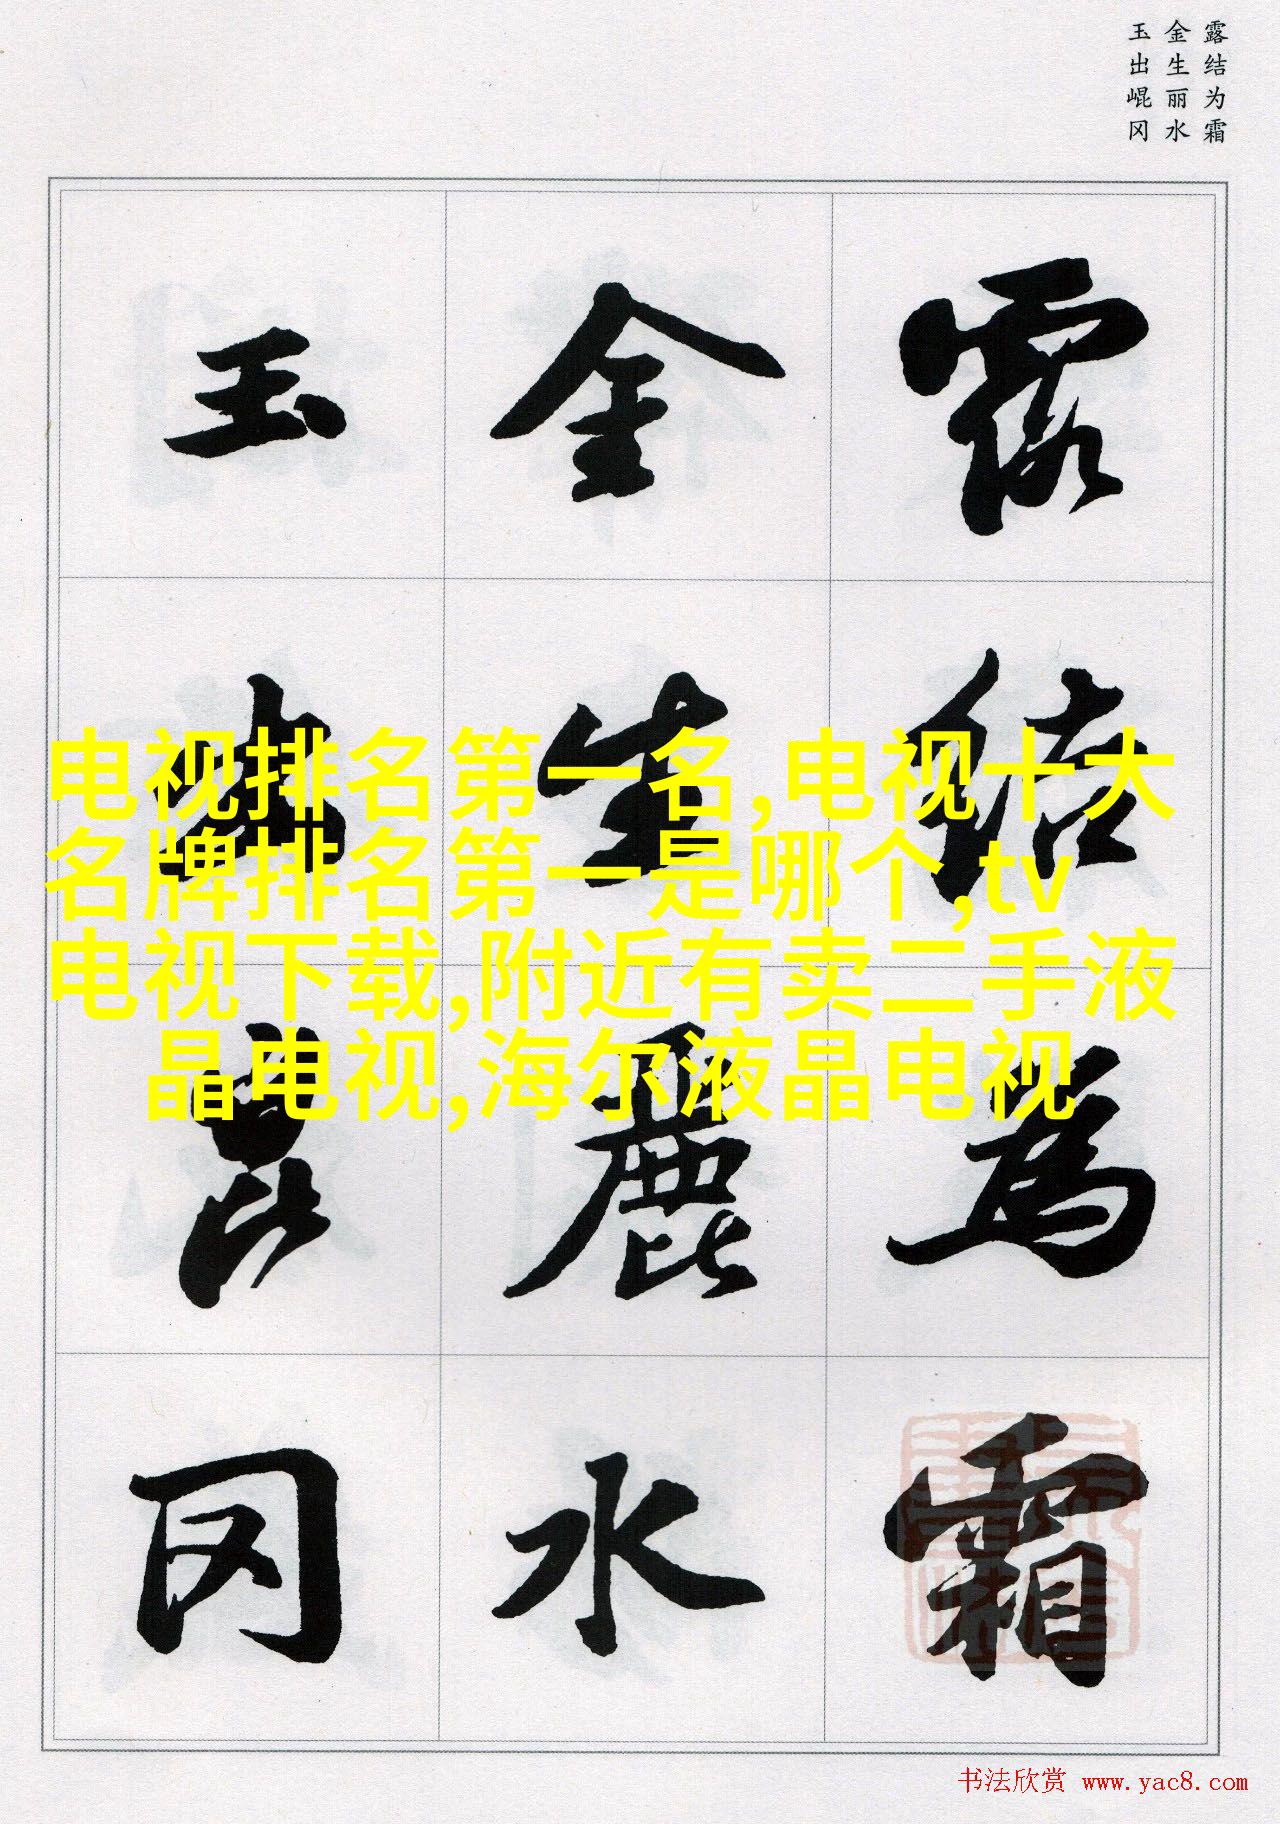 露结为霜
金生丽水
玉出崐冈
露結為霜
金生麗水
玉出崑冈
电视排名第一名,电视十大
名牌排名第一是哪个,tv
电视下载,附近有卖二手液
晶电视,海尔液晶电视
书法欣赏 www.yac8.com